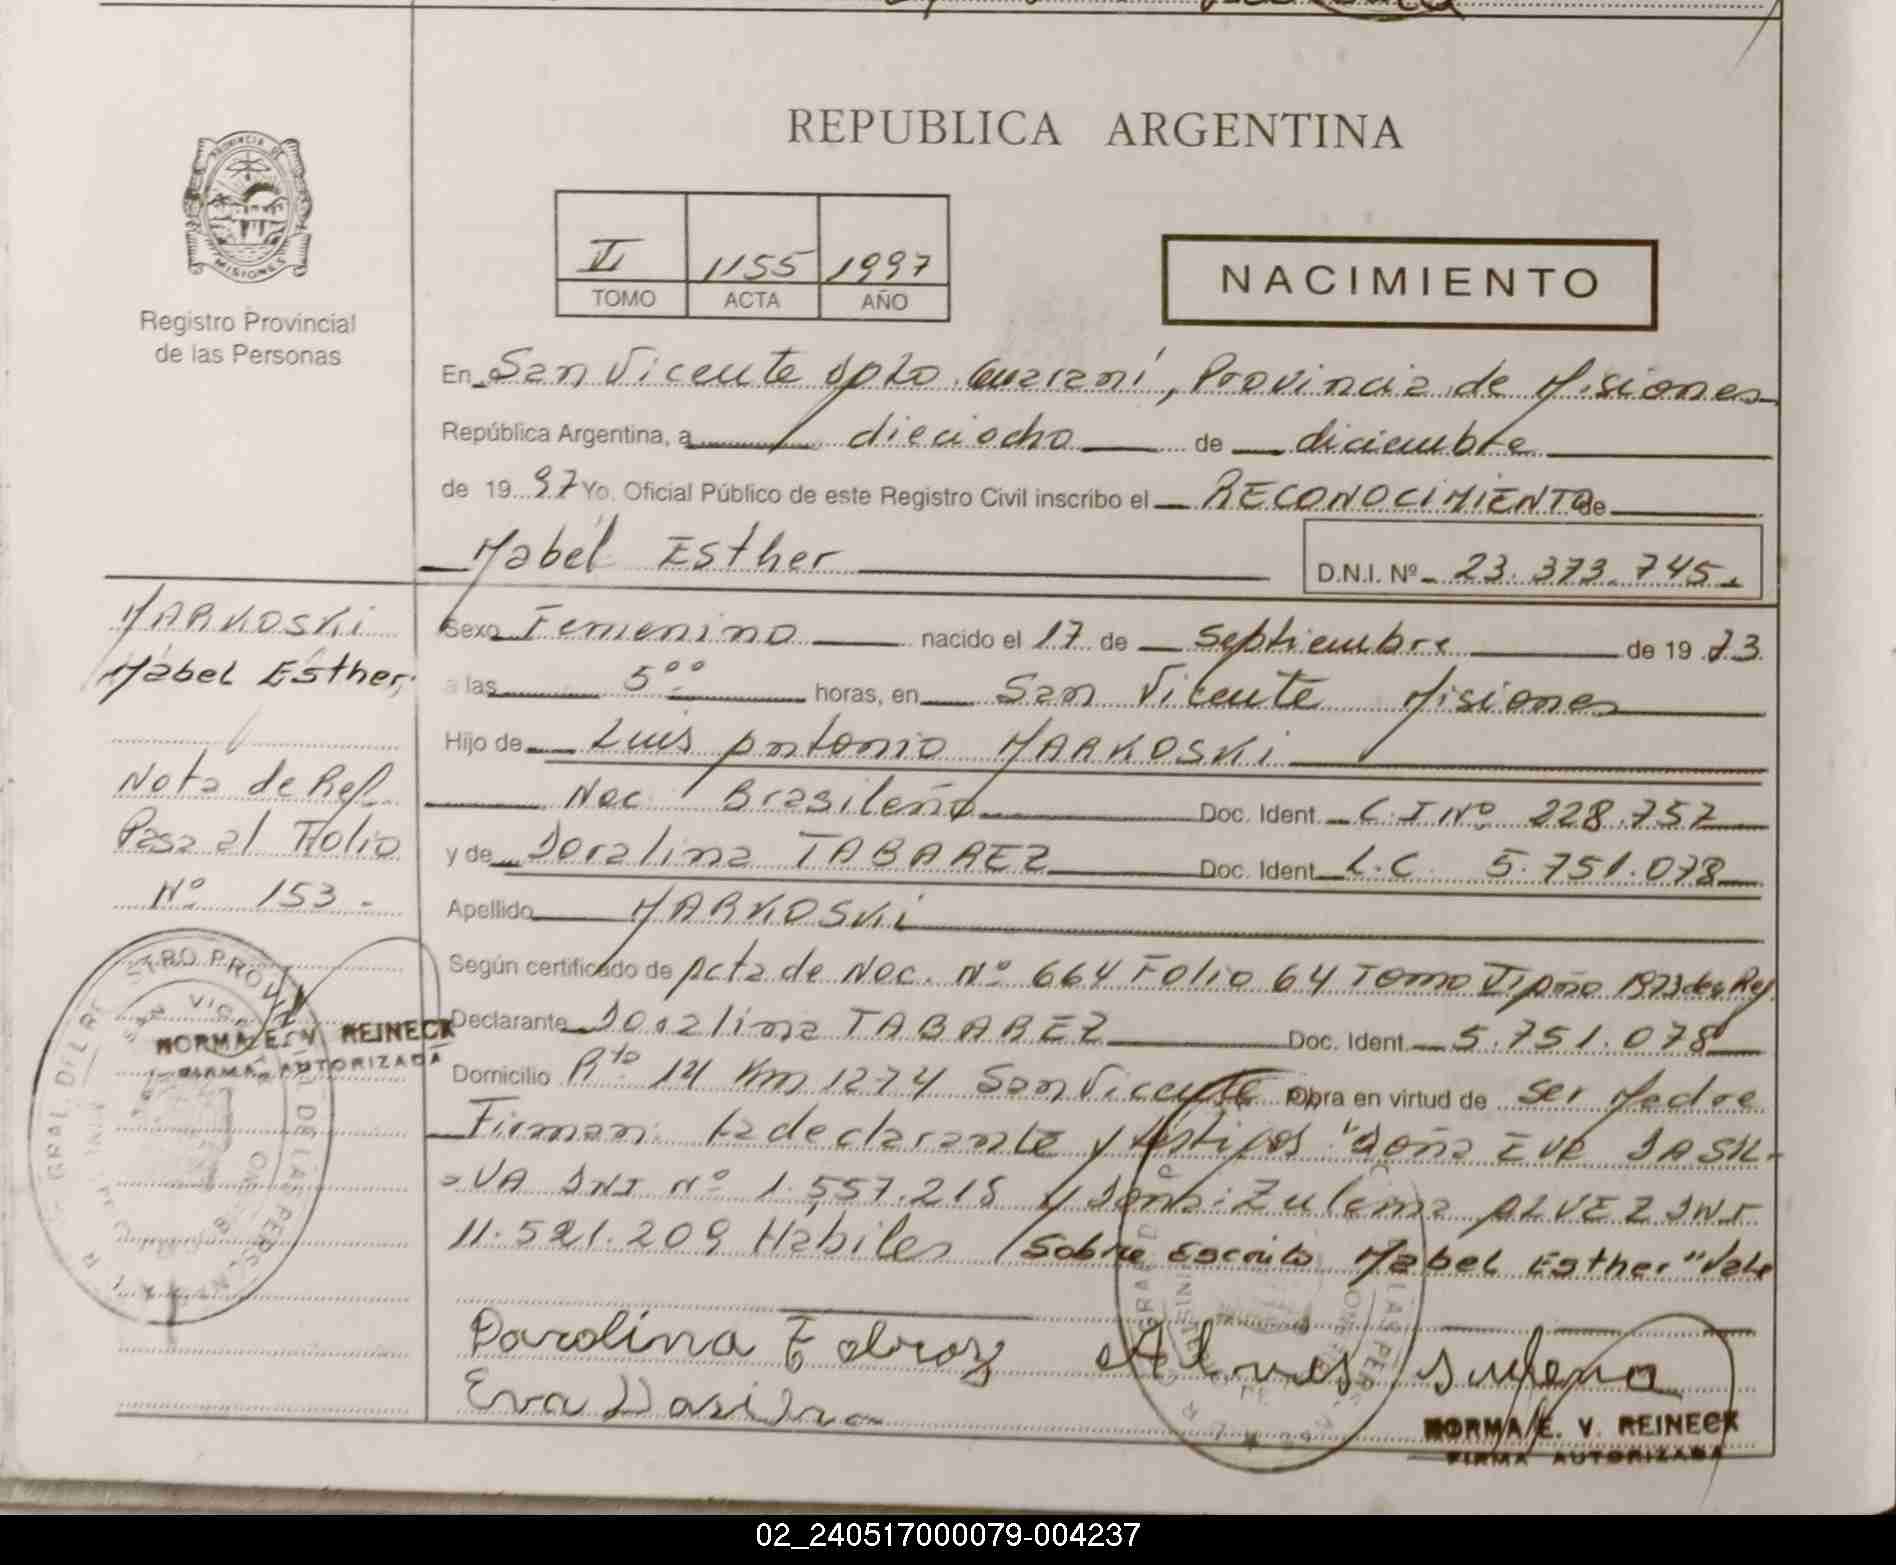 REPUBLICA ARGENTINA
PROVINCIA DE
MISIONES
Registro Provincial
de las Personas
II 1155 1997
TOMO ACTA AÑO
NACIMIENTO
En San Vicente Dpto. Guaraní, Provincia de Misiones
República Argentina, a dieciocho de diciembre
de 1997 Yo, Oficial Público de este Registro Civil inscribo el RECONOCIMIENTO de
Mabel Esther D.N.I. Nº 23.373.745.
MARKOSKI
Mabel Esther,
Nota de Ref.
Pasa al Folio
Nº 153.-
Sexo Femenino nacido el 17 de Septiembre de 1973
a las 5°° horas, en San Vicente Misiones
Hijo de Luis Antonio MARKOSKI
Nac. Brasileño Doc. Ident. C.I Nº 228.757
y de Doralina TABAREZ Doc. Ident. L.C. 5.751.078
Apellido MARKOSKI
Según certificado de Acta de Nac. Nº 664 Folio 64 Tomo Año 1973 Ref.
Declarante Doralina TABAREZ Doc. Ident. 5.751.078
Domicilio Rta 14 Km 1274 San Vicente Obra en virtud de ser Madre
Firman: la declarante y testigos "doña EVA DASIL-
=VA DNI Nº 1.557.215 y Doña: Zulema ALVEZ DNI
11.521.209 Habiles Sobre Escrito Mabel Esther "Vale
Eva
NORMA E. V. REINECK
FIRMA AUTORIZADA
NORMA E. V. REINECK
FIRMA AUTORIZADA
02_240517000079-004237